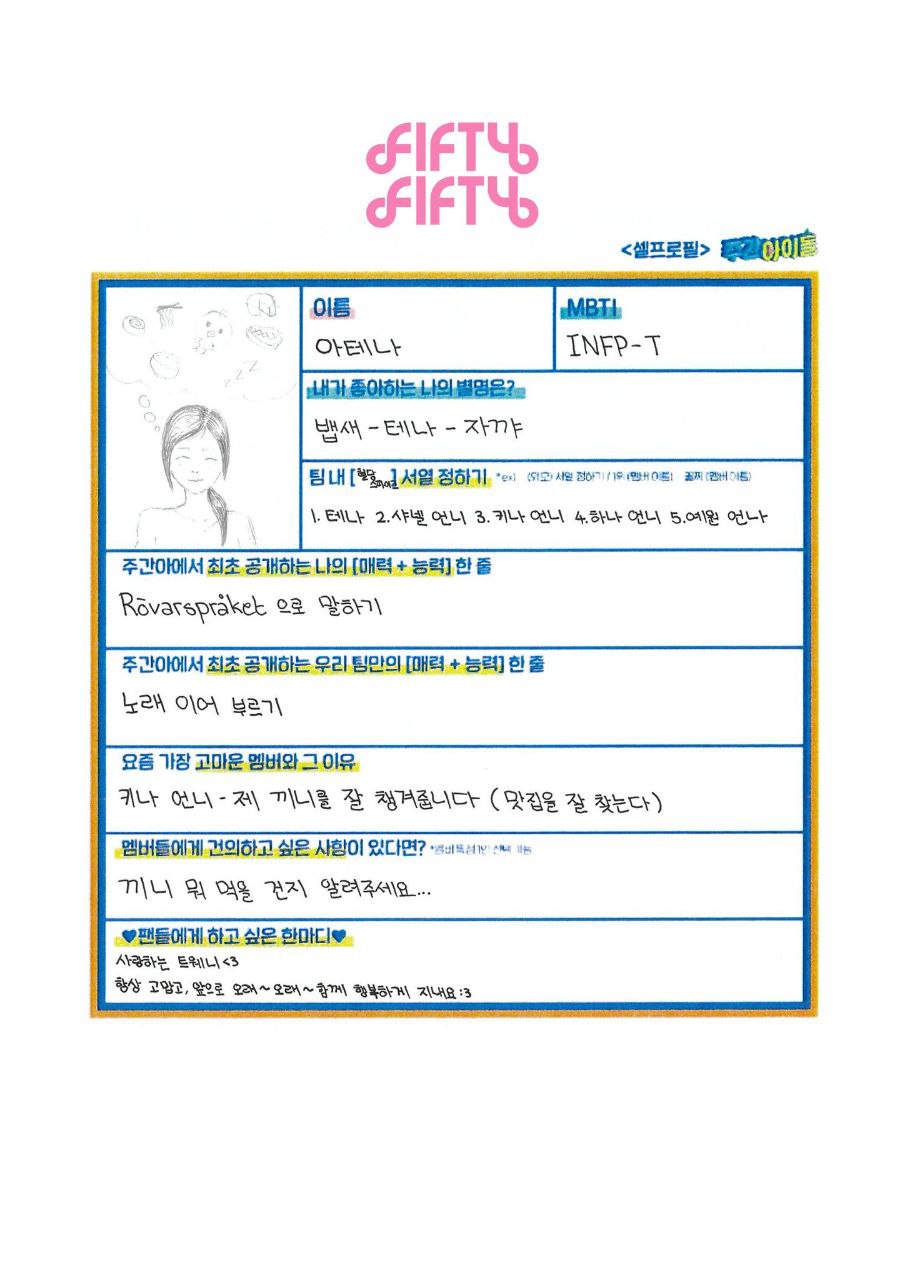 FIFTY
FIFTY
<셀프로필> 주간아이돌
z z z
이름
아테나
MBTI
INFP-T
내가 좋아하는 나의 별명은?
뱁새 - 테나 - 자까
팀 내 [혈당 스파이크] 서열 정하기 *ex) (외모) 서열 정하기 / 1위 (멤버 이름) 꼴찌 (멤버 이름)
1. 테나 2.샤넬 언니 3.키나 언니 4.하나 언니 5.예원 언니
주간아에서 최초 공개하는 나의 [매력 + 능력] 한 줄
Rövarspråket 으로 말하기
주간아에서 최초 공개하는 우리 팀만의 [매력 + 능력] 한 줄
노래 이어 부르기
요즘 가장 고마운 멤버와 그 이유
키나 언니 - 제 끼니를 잘 챙겨줍니다 (맛집을 잘 찾는다)
멤버들에게 건의하고 싶은 사항이 있다면?
끼니 뭐 먹을 건지 알려주세요...
♥팬들에게 하고 싶은 한마디♥
사랑하는 트웨니<3
항상 고맙고, 앞으로 오래~오래~함께 행복하게 지내요:3